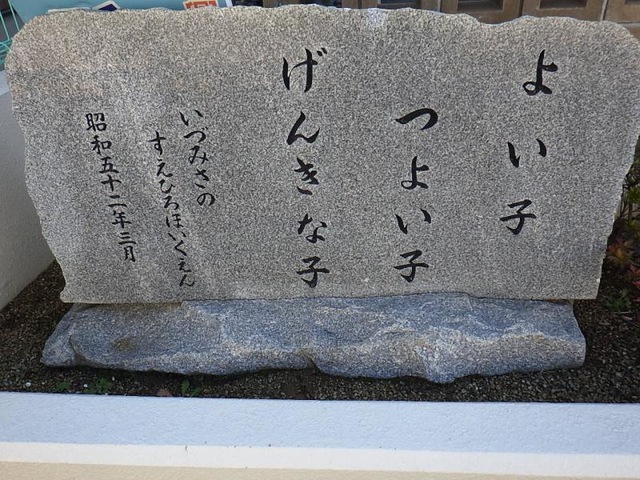 よい子
つよい子
げんきな子
いづみさの
すえひろほいくえん
昭和五十二年三月